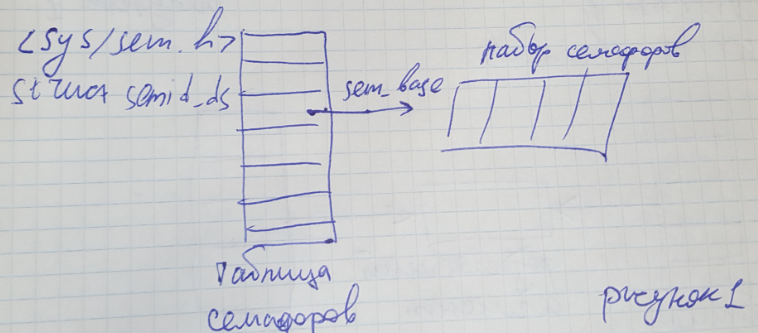 <sys/sem.h>
struct semid_ds
sem_base
набор семафоров
таблица
семафоров
рисунок 1